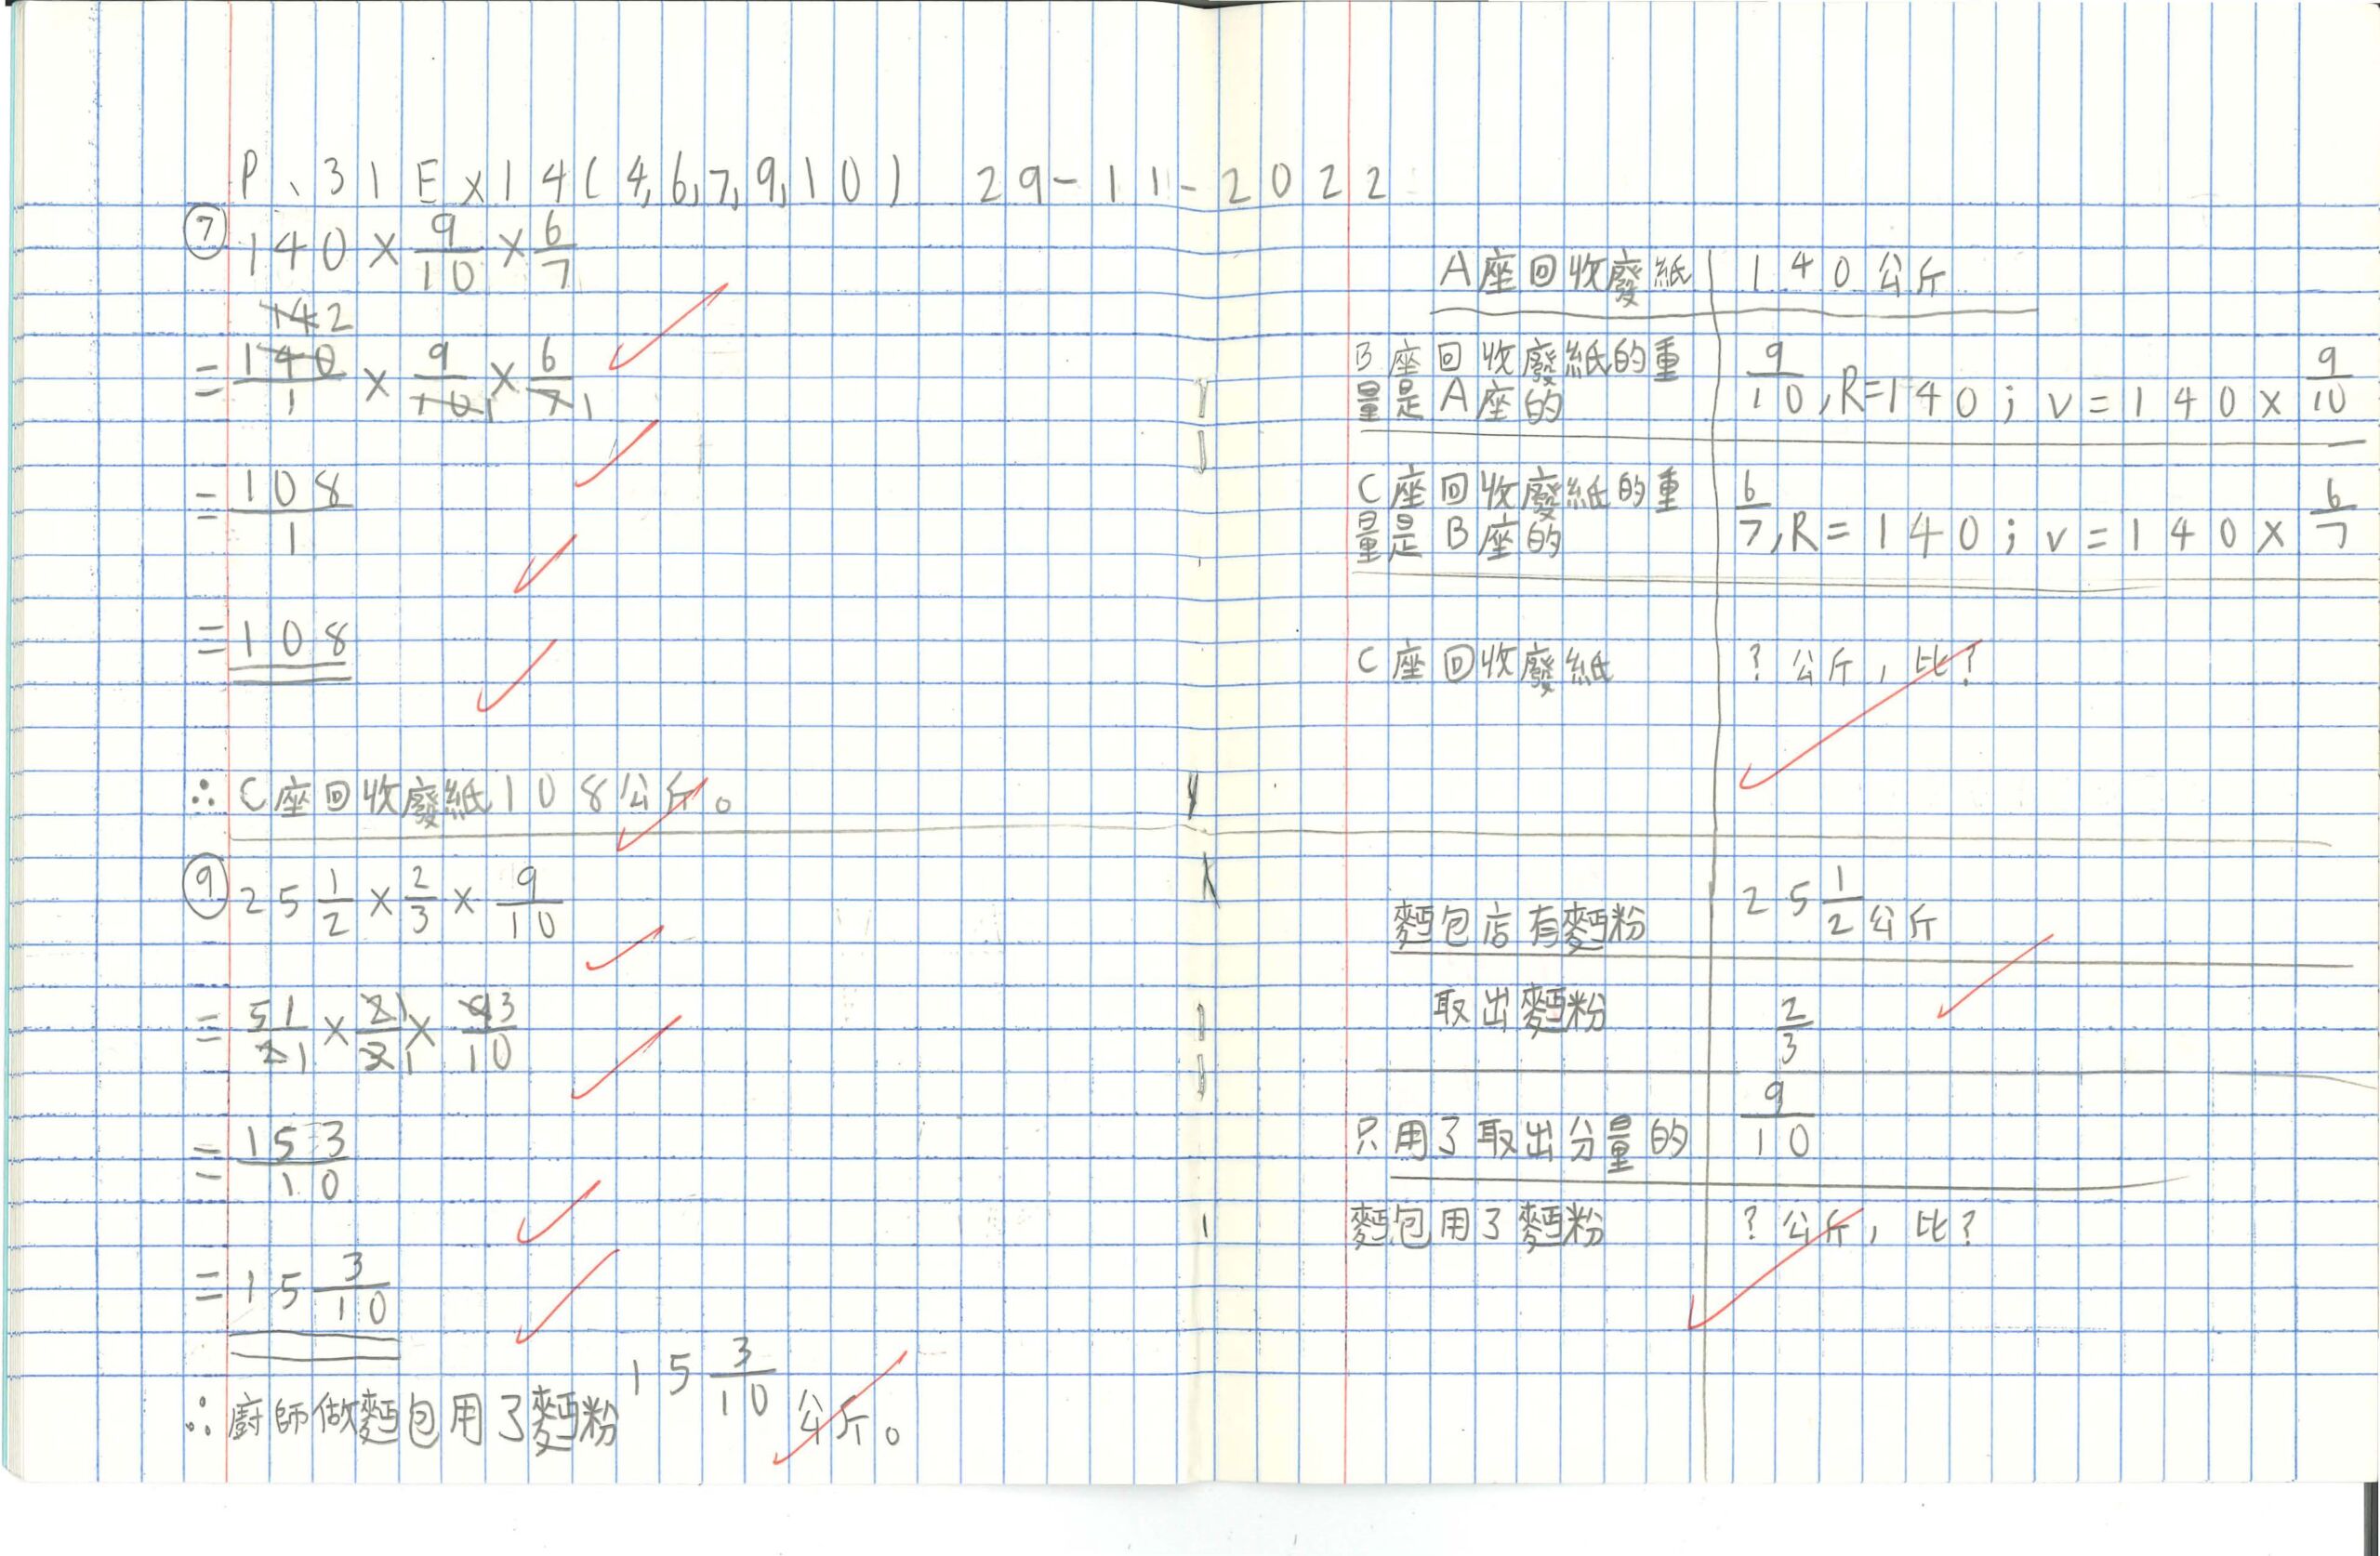 P、31 Ex14(4,6,7,9,10) 29-11-2022
⑦ 140 × 9/10 × 6/7
14 2
= 140/1 × 9/10 1 × 6/7 1
= 108/1
= 108
∴ C座回收廢紙108公斤。
⑨ 25 1/2 × 2/3 × 9/10
= 51/2 1 × 2 1/3 1 × 9 3/10
= 153/10
= 15 3/10
∴ 廚師做麵包用了麵粉 15 3/10 公斤。
A座回收廢紙 140公斤
B座回收廢紙的重 9/10, R=140; v=140× 9/10
量是A座的
C座回收廢紙的重 6/7, R=140; v=140× 6/7
量是B座的
C座回收廢紙 ?公斤, 比?
麵包店有麵粉 25 1/2 公斤
取出麵粉 2/3
只用了取出分量的 9/10
麵包用了麵粉 ?公斤, 比?